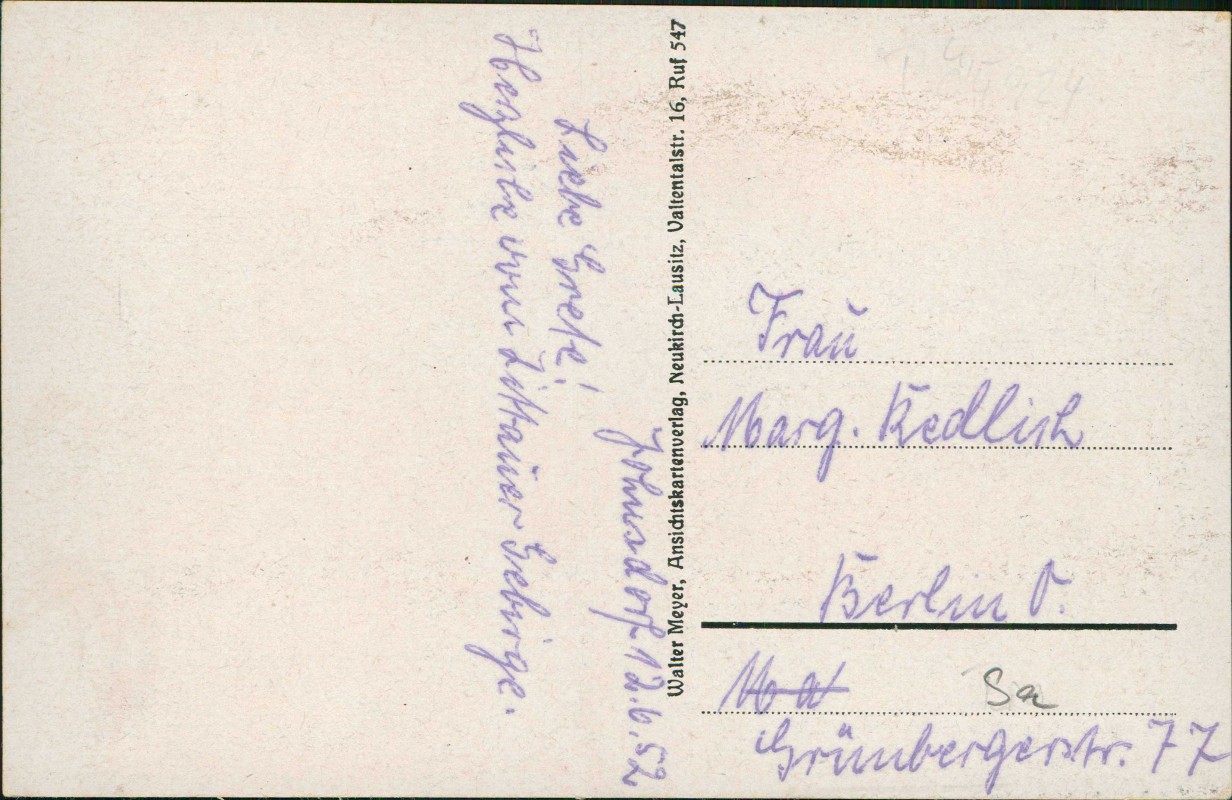 Johnsdorf 12.6.52
Liebe Grete!
Herzliche vom Zittauer Gebirge.
Walter Meyer, Ansichtskartenverlag, Neukirch-Lausitz, Valtentalstr. 16, Ruf 547
Frau
Marg. Redlich
Berlin O.
Sa
Grünbergerstr. 77